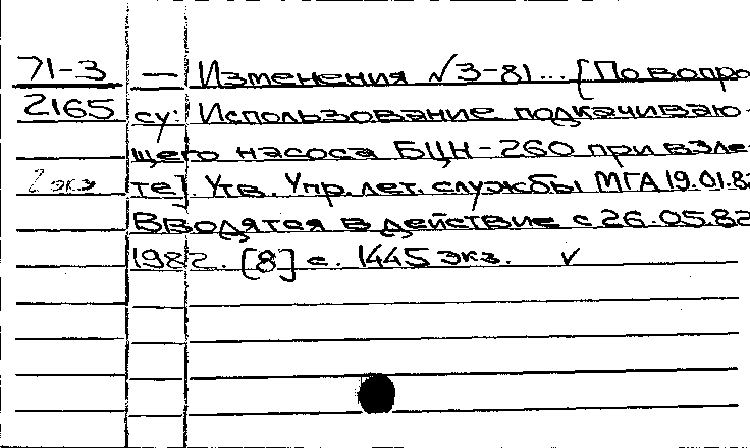 71-3 — Изменения √3-81... [По вопро
2165 су: Использование подкачиваю-
щего насоса БЦН-260 при взле-
2 экз те]. Утв. Упр. лет. службы МГА 19.01.82
Вводятся в действие с 26.05.82
1982. [8] с. 1445 экз. ✓